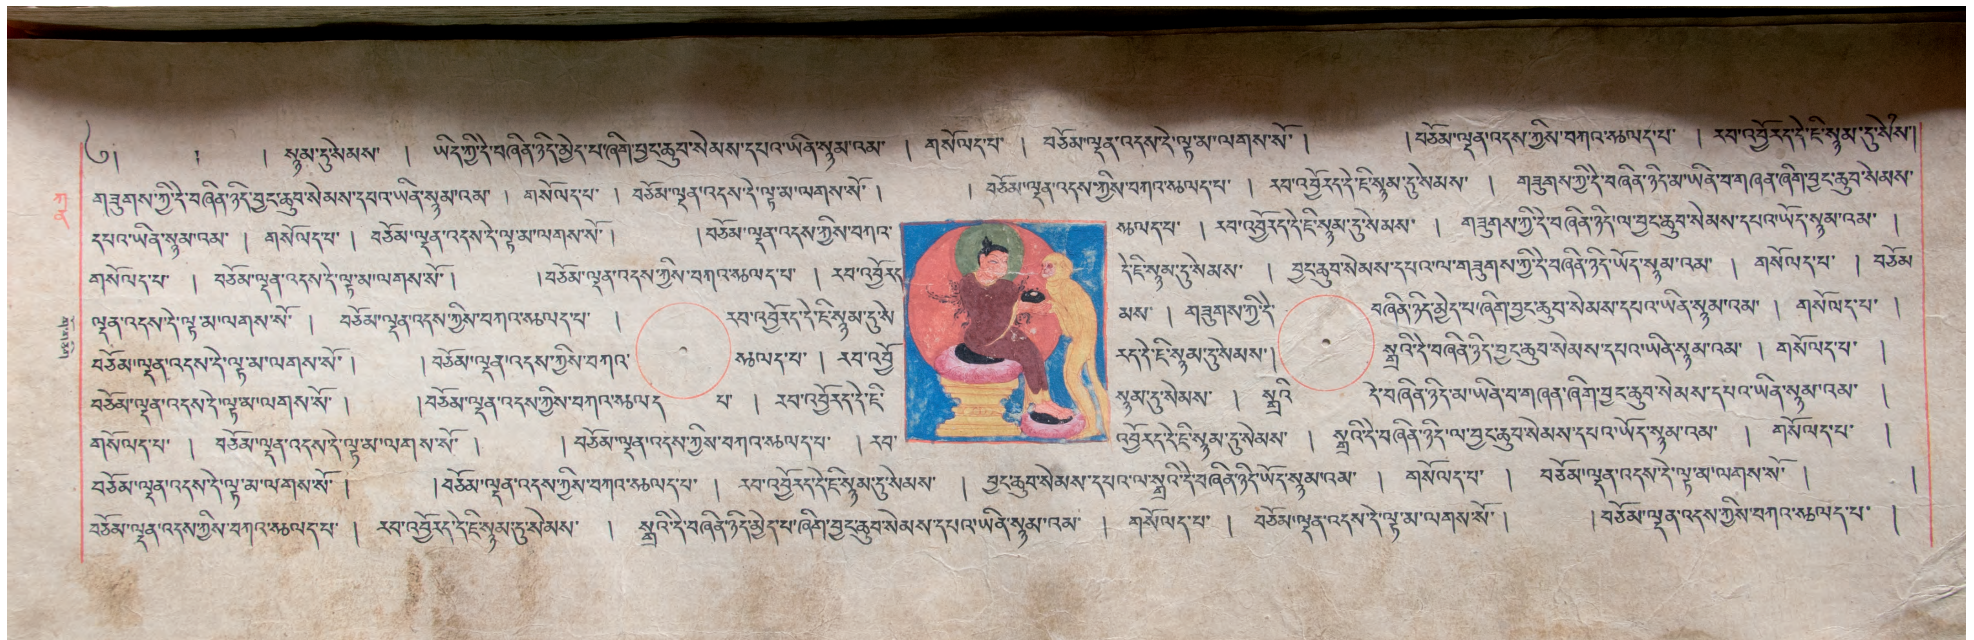 ༄། ། །སྙམ་དུ་སེམས་ ། ཡིད་ཀྱི་དེ་བཞིན་ཉིད་མྱེད་པ་ཞིག་བྱང་ཆུབ་སེམས་དཔའ་ཡིན་སྙམ་འམ་ ། གསོལད་པ་ ། བཅོམ་ལྡན་འདས་དེ་ལྟ་མ་ལགས་སོ་ ། །བཅོམ་ལྡན་འདས་ཀྱིས་བཀའ་སྩལད་པ་ ། རབ་འབྱོརད་དེ་ཇི་སྙམ་དུ་སེམས།
གཟུགས་ཀྱི་དེ་བཞིན་ཉིད་བྱང་ཆུབ་སེམས་དཔའ་ཡིན་སྙམ་འམ་ ། གསོལད་པ་ ། བཅོམ་ལྡན་འདས་དེ་ལྟ་མ་ལགས་སོ་ ། །བཅོམ་ལྡན་འདས་ཀྱིས་བཀའ་སྩལད་པ་ ། རབ་འབྱོརད་དེ་ཇི་སྙམ་དུ་སེམས་ ། གཟུགས་ཀྱི་དེ་བཞིན་ཉིད་མ་ཡིན་བ་གཞན་ཞིག་བྱང་ཆུབ་སེམས་
དཔའ་ཡིན་སྙམ་འམ་ ། གསོལད་པ་ ། བཅོམ་ལྡན་འདས་དེ་ལྟ་མ་ལགས་སོ་ ། །བཅོམ་ལྡན་འདས་ཀྱིས་བཀའ་ སྩལད་པ་ ། རབ་འབྱོརད་དེ་ཇི་སྙམ་དུ་སེམས་ ། གཟུགས་ཀྱི་དེ་བཞིན་ཉིད་ལ་བྱང་ཆུབ་སེམས་དཔའ་ཡོད་སྙམ་འམ་ །
གསོལད་པ་ ། བཅོམ་ལྡན་འདས་དེ་ལྟ་མ་ལགས་སོ་ ། །བཅོམ་ལྡན་འདས་ཀྱིས་བཀའ་སྩལད་པ་ ། རབ་འབྱོརད་ དེ་ཇི་སྙམ་དུ་སེམས་ ། བྱང་ཆུབ་སེམས་དཔའ་ལ་གཟུགས་ཀྱི་དེ་བཞིན་ཉིད་ཡོད་སྙམ་འམ་ ། གསོལད་པ་ ། བཅོམ་
ལྡན་འདས་དེ་ལྟ་མ་ལགས་སོ་ ། བཅོམ་ལྡན་འདས་ཀྱིས་བཀའ་སྩལད་པ་ ། རབ་འབྱོརད་དེ་ཇི་སྙམ་དུ་སེ མས་ ། གཟུགས་ཀྱི་དེ་ བཞིན་ཉིད་མྱེད་པ་ཞིག་བྱང་ཆུབ་སེམས་དཔའ་ཡིན་སྙམ་འམ་ ། གསོལད་པ་ །
བཅོམ་ལྡན་འདས་དེ་ལྟ་མ་ལགས་སོ་ ། །བཅོམ་ལྡན་འདས་ཀྱིས་བཀའ་ སྩལད་པ་ ། རབ་འབྱོ རད་དེ་ཇི་སྙམ་དུ་སེམས་། སྒྲའི་དེ་བཞིན་ཉིད་བྱང་ཆུབ་སེམས་དཔའ་ཡིན་སྙམ་འམ་ ། གསོལད་པ་ །
བཅོམ་ལྡན་འདས་དེ་ལྟ་མ་ལགས་སོ་ ། །བཅོམ་ལྡན་འདས་ཀྱིས་བཀའ་སྩལད པ་ ། རབ་འབྱོརད་དེ་ཇི་ སྙམ་དུ་སེམས་ ། སྒྲའི དེ་བཞིན་ཉིད་མ་ཡིན་བ་གཞན་ཞིག་བྱང་ཆུབ་སེམས་དཔའ་ཡིན་སྙམ་འམ་ །
གསོལད་པ་ ། བཅོམ་ལྡན་འདས་དེ་ལྟ་མ་ལགས་སོ་ ། །བཅོམ་ལྡན་འདས་ཀྱིས་བཀའ་སྩལད་པ་ ། རབ་ འབྱོརད་དེ་ཇི་སྙམ་དུ་སེམས་ ། སྒྲའི་དེ་བཞིན་ཉིད་ལ་བྱང་ཆུབ་སེམས་དཔའ་ཡོད་སྙམ་འམ་ ། གསོལད་པ་ །
བཅོམ་ལྡན་འདས་དེ་ལྟ་མ་ལགས་སོ་ ། །བཅོམ་ལྡན་འདས་ཀྱིས་བཀའ་སྩལད་པ་ ། རབ་འབྱོརད་དེ་ཇི་སྙམ་དུ་སེམས་ ། བྱང་ཆུབ་སེམས་དཔའ་ལ་སྒྲའི་དེ་བཞིན་ཉིད་ཡོད་སྙམ་འམ་ ། གསོལད་པ་ ། བཅོམ་ལྡན་འདས་དེ་ལྟ་མ་ལགས་སོ་ ། །
བཅོམ་ལྡན་འདས་ཀྱིས་བཀའ་སྩལད་པ་ ། རབ་འབྱོརད་དེ་ཇི་སྙམ་དུ་སེམས་ ། སྒྲའི་དེ་བཞིན་ཉིད་མྱེད་པ་ཞིག་བྱང་ཆུབ་སེམས་དཔའ་ཡིན་སྙམ་འམ་ ། གསོལད་པ་ ། བཅོམ་ལྡན་འདས་དེ་ལྟ་མ་ལགས་སོ་ ། །བཅོམ་ལྡན་འདས་ཀྱིས་བཀའ་སྩལད་པ་ །